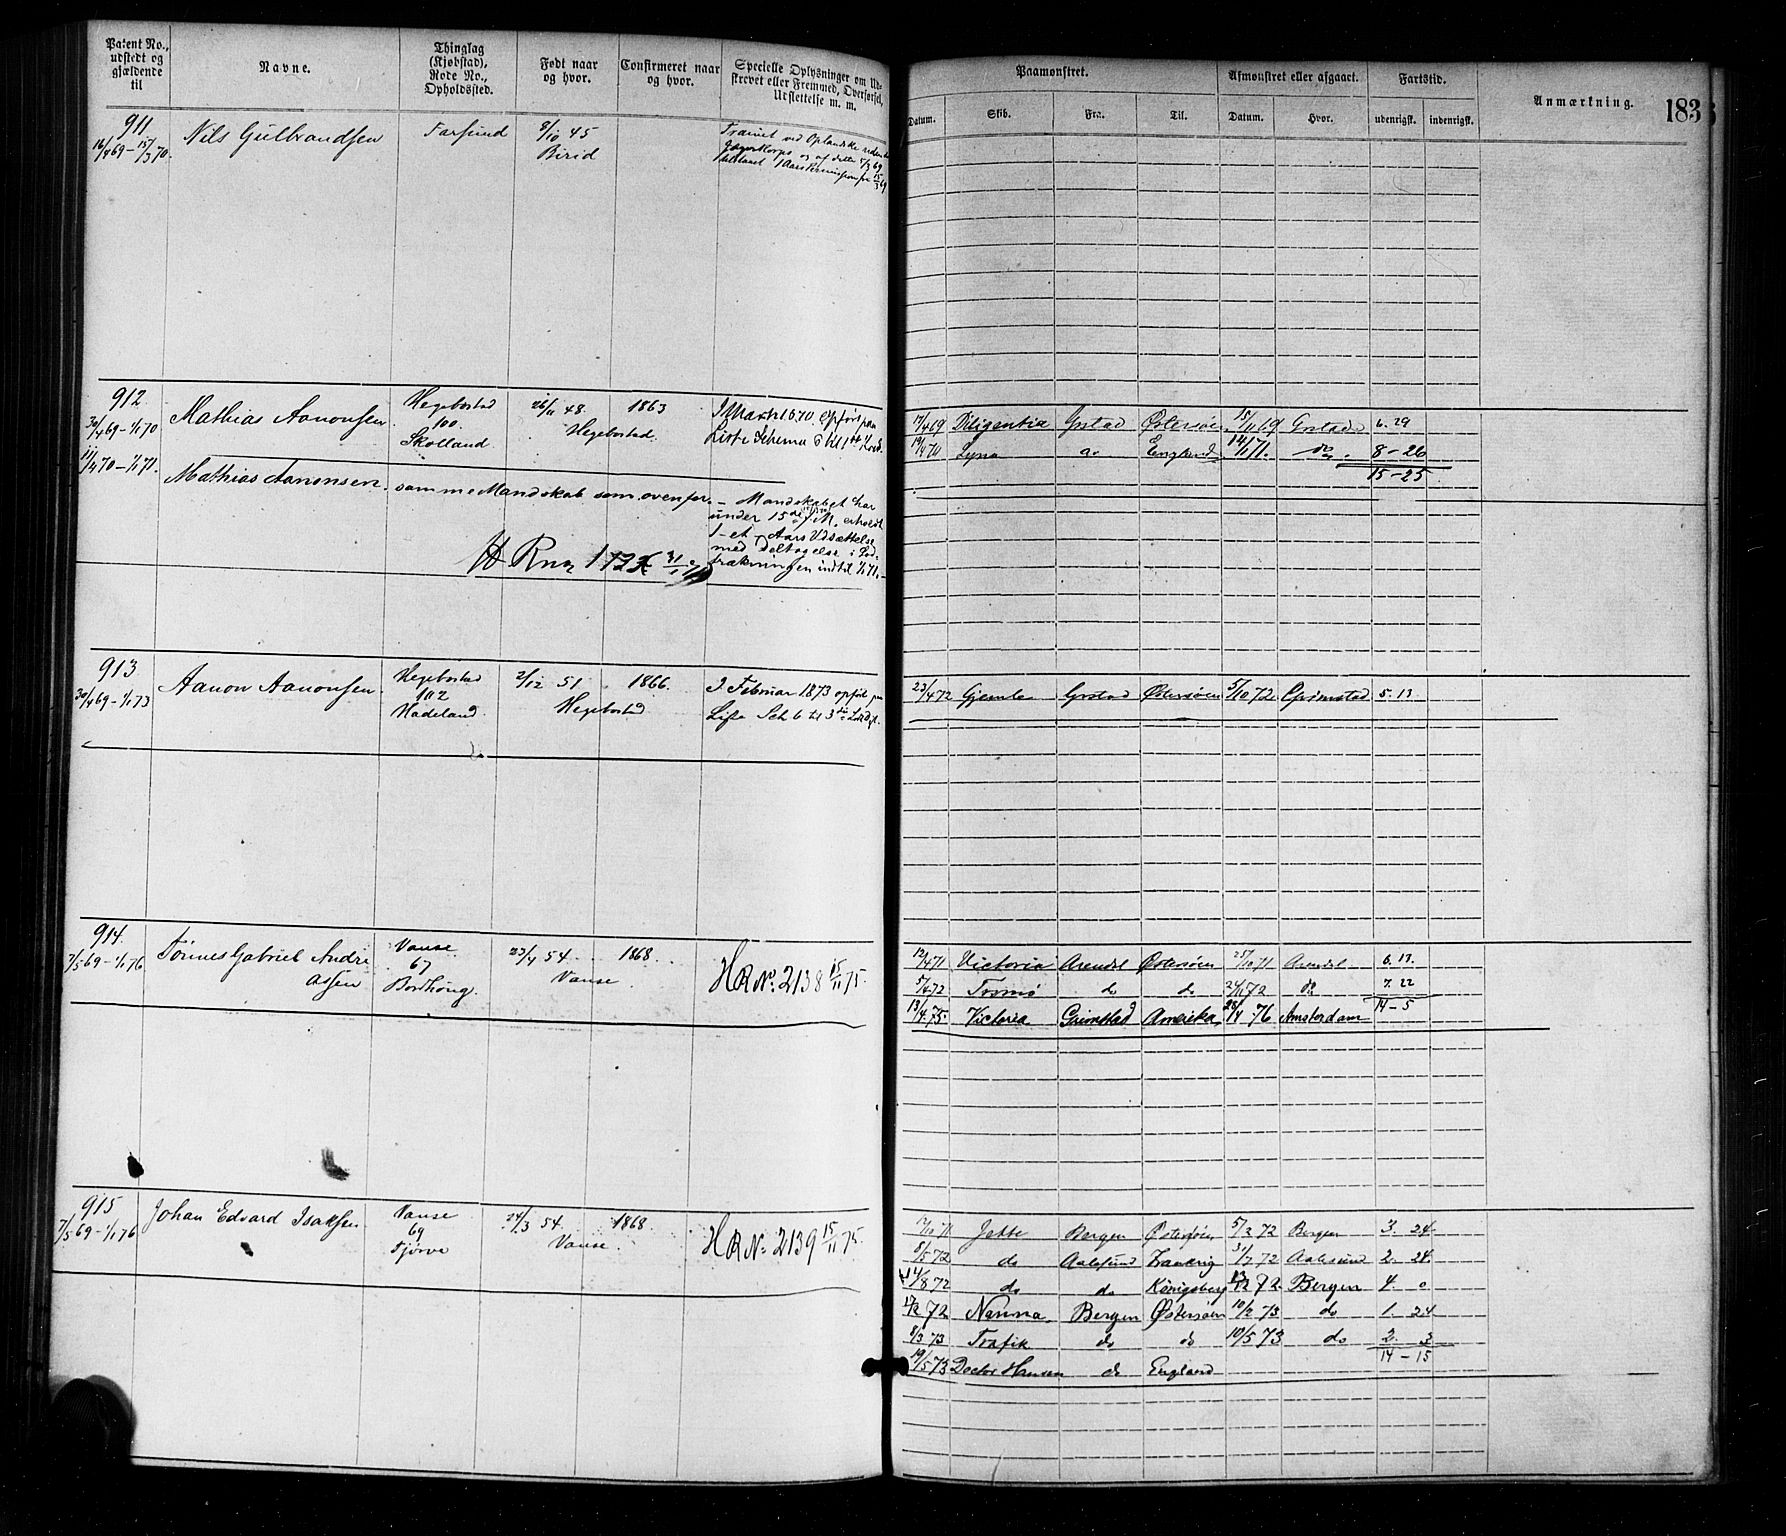 Patent No., udstedt og gjældende til
Navne.
Thinglag (Kjøbstad), Rode No., Opholdssted.
Født naar og hvor.
Confirmeret naar og hvor.
Specielle Oplysninger om Udskrevet eller Fremmed, Overførsel, Udslettelse m. m.
Paamønstret.
Afmønstret eller afgaaet.
Fartstid.
Anmærkning.
183
Datum.
Skib.
Fra.
Til.
Datum.
Hvor.
udenrigsk.
indenrigsk.
911
16/4 69 - 15/3 70.
Nils Gulbrandsen
Farsund
8/10 45
Birid
912
30/4 69 - 1/1 70
Mathias Aanonsen
Hegebostad
100
Skolland
26/11 48.
Hegebostad.
1863
I Marts 1870 opført paa
Liste Schema 6 til 1ste
17/4 69 Diligentia Grstad Østersøen 15/11 69 Grstad 6. 29
19/4 70 Lyna do England 12/1 71. do. 8 - 26
15 - 25
11/4 70 - 1/1 71.
Mathias Aanonsen. samme Mandskab som ovenfor. - Mandskabet har
under 15de
1-et Aars Udsættelse
med Deltagelse i Lod-
trækningen indtil 1/1 71.
913
30/4 69 - 1/1 73
Aanon Aanonsen
Hegebostad
102
Hadeland.
2/12 51
Hegebostad
1866.
I Februar 1873 opført paa
Liste Sch 6 til 3die
23/4 72 Gjemle Grstad Østersøen 5/10 72 Grimstad 5. 13
914.
7/5 69 - 1/1 76
Tønnes Gabriel Andre
assen
Vanse
67
Bordhoug.
23/4 54
Vanse
1868
H R No. 2138 15/11 75.
12/4 71 Victoria Arendal Østersøen 25/10 71 Arendal 6. 13.
5/4 72 Tromø do do 24/11 72 do 7. 22
14 - 5
13/4 75. Victoria Grimstad Amerika 28/4 76 Amsterdam
915
7/5 69 - 1/1 76
Johan Edvard Isaksen
Vanse
69
Tjørve
24/3 54
Vanse
1868
H R No. 2139 15/11 75.
71 Jette Bergen Østersøen 5/2 72 Bergen 3. 24.
8/5 72 do Aalesund 31/7 72 Aalesund 2. 24.
14/8 72 do do Königsberg 72 Bergen 4. 0
72 Nanna Bergen Østersøen 10/2 73 do 1. 24
8/3 73 Trafik do do 10/5 73 do 2. 3
14 - 15
19/5 73 Doctor Hansen do England